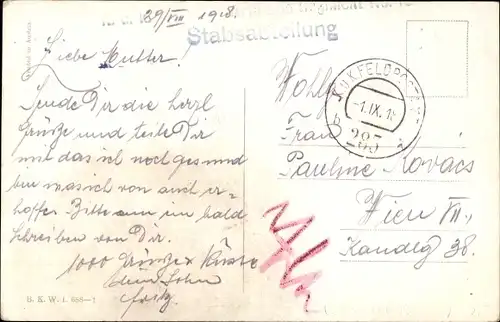 29/VIII 1918.
Stabsabteilung
Liebe Mutter!
Sende Dir die herzl
Grüße und teile Dir
mit das ich noch gesund
bin was ich von auch er-
hoffe. Bitte um im bald
schreiben von Dir.
1000 Grüße & Küsse
dein Sohn
Fritz.
B. K. W. I. 888-1
K.U.K. FELDPOST
-1.IX.18
b
285
Wohlg
Frau
Pauline Kovacs
Wien VII.
Kandlg 38.